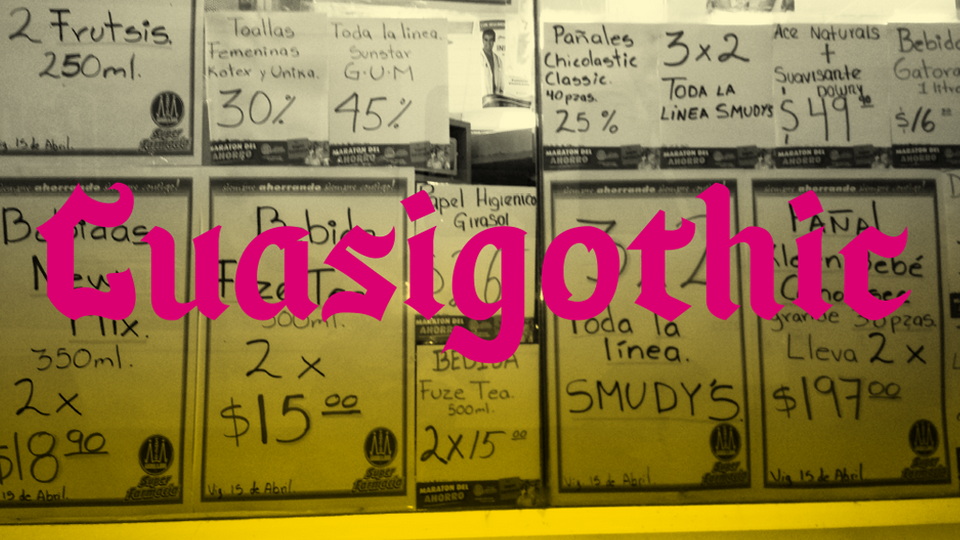 2 Frutsis.
250ml.
Vig. 15 de Abril.
Super
Farmacia
Toallas
Femeninas
Kotex y Unika.
30%
MARATON DEL
AHORRO
Toda la linea.
Sunstar
G·U·M
45%
MARATON DEL
AHORRO
Pañales
Chicolastic
Classic.
40pzas.
25%
MARATON DEL
AHORRO
3x2
TODA LA
LíNEA SMUDYS
MARATON DEL
AHORRO
Ace Naturals
+
Suavisante
Downy
$49
MARATON DEL
AHORRO
Bebida
Gatora
1 litro
$16
Cuasigothic
siempre ahorrando siempre contigo!
Bebidas
New
Mix.
350ml.
2x
$18 90
15 de Abril.
Super
Farmacia
siempre ahorrando siempre contigo!
Bebida
Fuze Tea
500ml.
2 x
$15 00
Vig. 15 de Abril.
Super
Farmacia
Papel Higienico
Girasol
MARATON DEL
AHORRO
BEBIDA
Fuze Tea.
500ml.
2X15 00
MARATON DEL
AHORRO
siempre ahorrando siempre contigo!
3 2
Toda la
línea.
SMUDY'S.
Vig. 15 de Abril.
Super
Farmacia
siempre ahorrando siempre contigo!
PAÑAL
Klein Bebé
grande 30pzas.
Lleva 2 x
$197 00
Vig. 15 de Abril.
Super
Farmacia